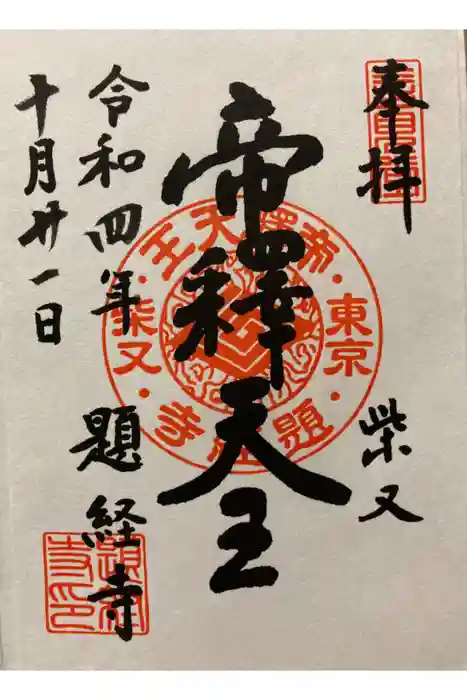 奉拝
柴又
帝釋天王
令和四年
十月廿一日
題経寺
帝釋天王
東京
柴又
題経寺